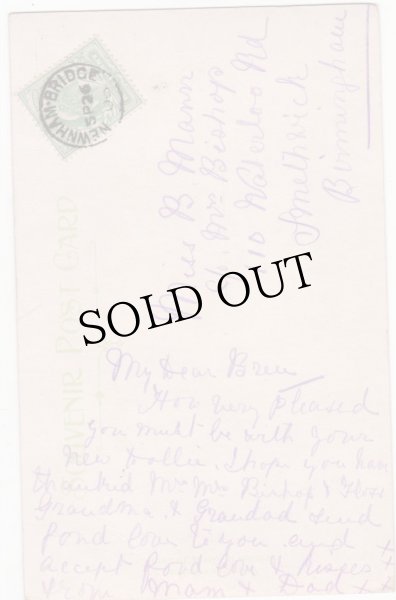 NEWNHAM-BRIDGE
SP 26
Miss B Mann
Mrs Bishop
10 Waterloo Rd
Smethwick
Birmingham
SOUVENIR POST CARD
SOLD OUT
My Dear
How very pleased
you must be with your
new dollie. I hope you have
thanked Mr Mrs Bishop &
Grandma & Grandad send
fond love to you and
accept fond love & kisses
from Mam & Dad